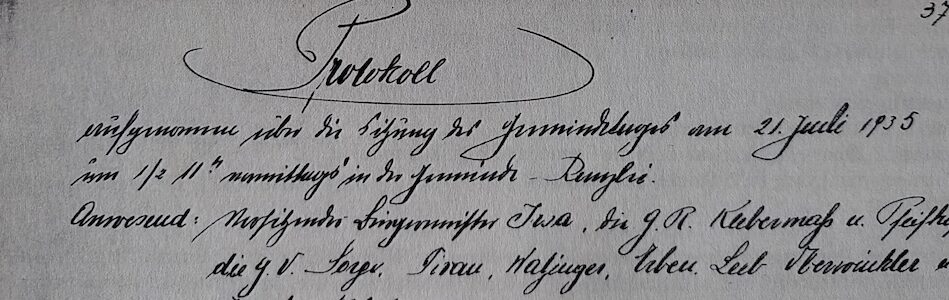 37
Protokoll
aufgenomme über die Sitzung des Gemeindetages am 21. Juli 1935
um 1/2 11h vormittags in der Gemeinde-Kanzlei.
Anwesend: Vorsitzender Bürgermeister die G. R. Klebermaß u.
die G. V. Sorger, Watzinger, Erben, Leeb Oberwinkler